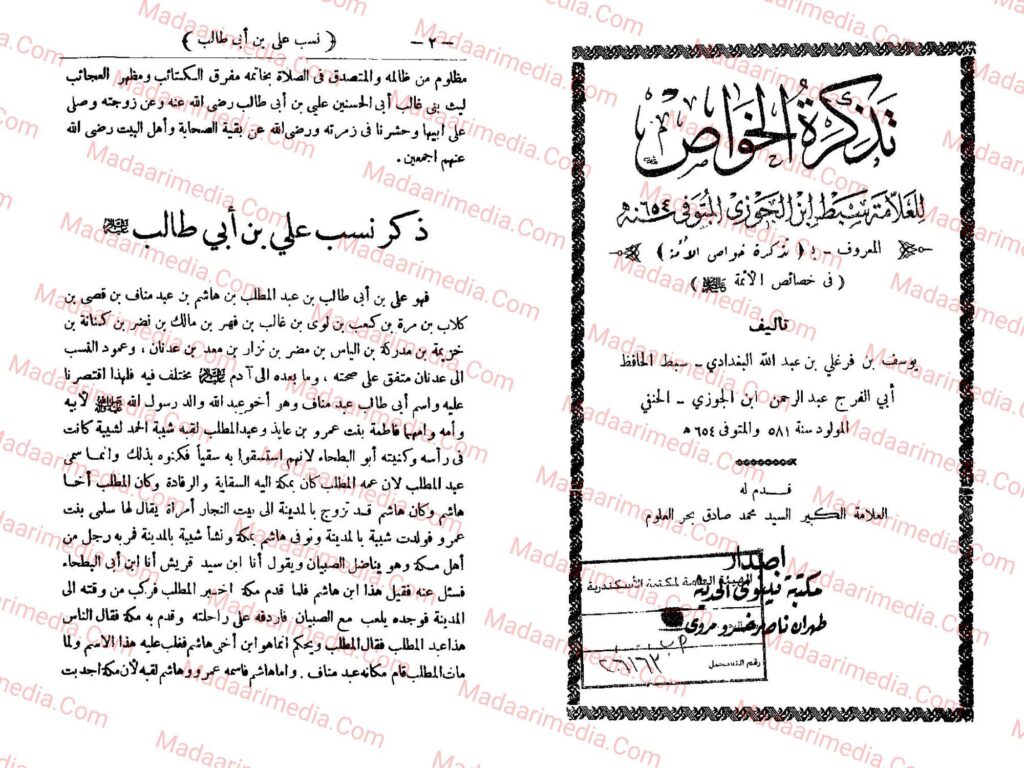 تذكرة الخواص
للعلامة سبط ابن الجوزي المتوفى سنة ٦٥٤ هـ
المعروف - ب ( تذكرة خواص الأمة )
( فى خصائص الأئمة )
تاليف
يوسف بن فرغلي بن عبد الله البغدادي - سبط الحافظ
أبي الفرج عبد الرحمن ابن الجوزي - الحنفي
المولود سنة ٥٨١ والمتوفى ٦٥٤ هـ
قدم له
العلامة الكبير السيد محمد صادق بحر العلوم
اصدار
مكتبة نينوى الحديثة
طهران ناصر خسرو مروى
الهيئة العامة لمكتبة الأسكندرية
رقم التسجيل
- ٢ - ( نسب على بن أبى طالب )
مظلوم من ظالمه والمتصدق فى الصلاة بخاتمه مفرق الكتائب ومظهر العجائب
ليث بنى غالب أبى الحسنين علي بن أبى طالب رضى الله عنه وعن زوجته وصلى
على ابيها وحشرنا فى زمرته ورضى الله عن بقية الصحابة وأهل البيت رضى الله
عنهم اجمعين .
ذكر نسب علي بن أبي طالب
فهو على بن أبى طالب بن عبد المطلب بن هاشم بن عبد مناف بن قصى بن
كلاب بن مرة بن كعب بن لوى بن غالب بن فهر بن مالك بن نضر بن كنانة بن
خزيمة بن مدركة بن الياس بن مضر بن نزار بن معد بن عدنان ، وعمود النسب
الى عدنان متفق على صحته ، وما بعده الى آدم مختلف فيه فلهذا اقتصرنا
عليه واسم أبى طالب عبد مناف وهو أخو عبد الله والد رسول الله لأبيه
وأمه وامهما فاطمة بنت عمرو بن عايذ وعبد المطلب لقبه شيبة الحمد لشيبة كانت
فى رأسه وكنيته أبو البطحاء لانهم استسقوا به سقياً فكنوه بذلك وانما سمى
عبد المطلب لان عمه المطلب كان بمكة اليه السقاية والرفادة وكان المطلب أخا
هاشم وكان هاشم قد تزوج بالمدينة الى بيت النجار أمرأة يقال لها سلمى بنت
عمرو فولدت شيبة بالمدينة وتوفى هاشم بمكة ونشأ شيبة بالمدينة فمر به رجل من
أهل مكة وهو يناضل الصبيان ويقول أنا ابن سيد قريش أنا ابن أبى البطحاء
فسئل عنه فقيل هذا ابن هاشم فلما قدم مكة اخبر المطلب فركب من وقته الى
المدينة فوجده يلعب مع الصبيان فاردفه على راحلته وقدم به مكة فقال الناس
هذا عبد المطلب فقال المطلب ويحكم انما هو ابن أخى هاشم فغلب عليه هذا الاسم ولما
مات المطلب قام مكانه عبد مناف . واما هاشم فاسمه عمرو وهاشم لقبه لأن مكة اجدبت
Madaarimedia.Com